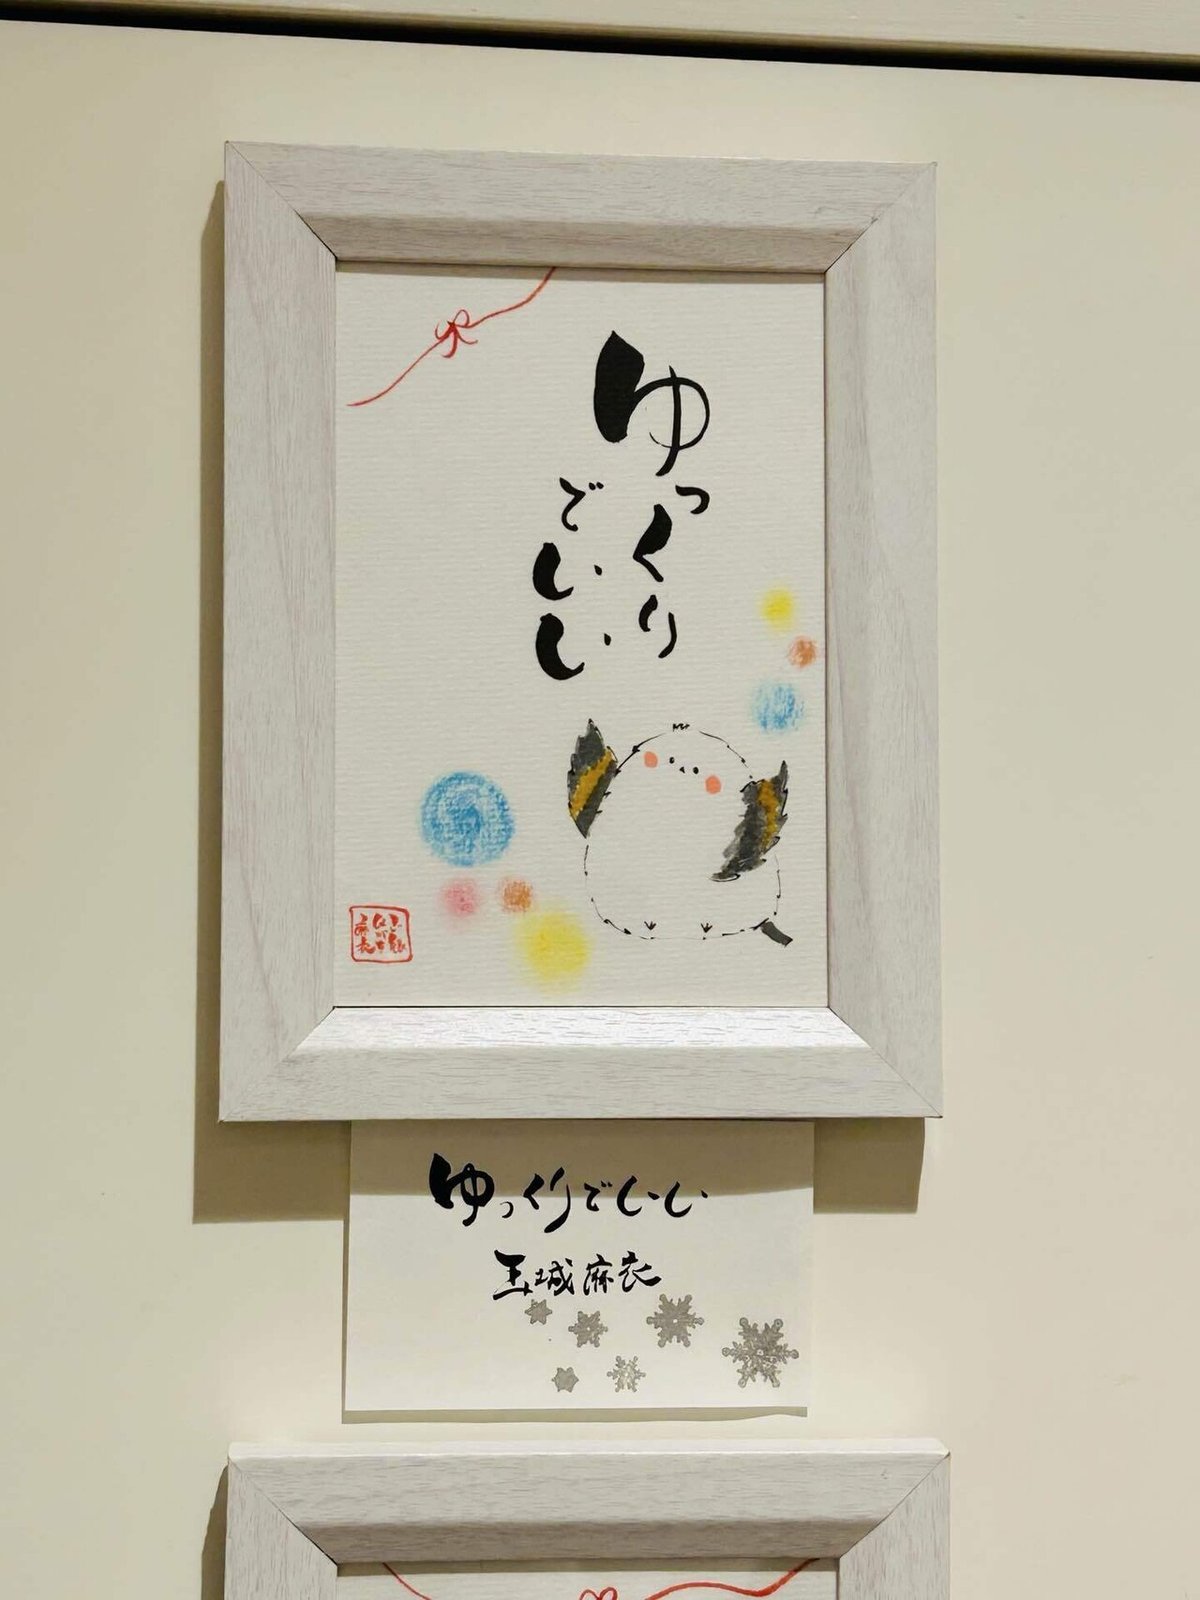 ゆっくり
でいい
ゆっくりでいい
玉城麻衣